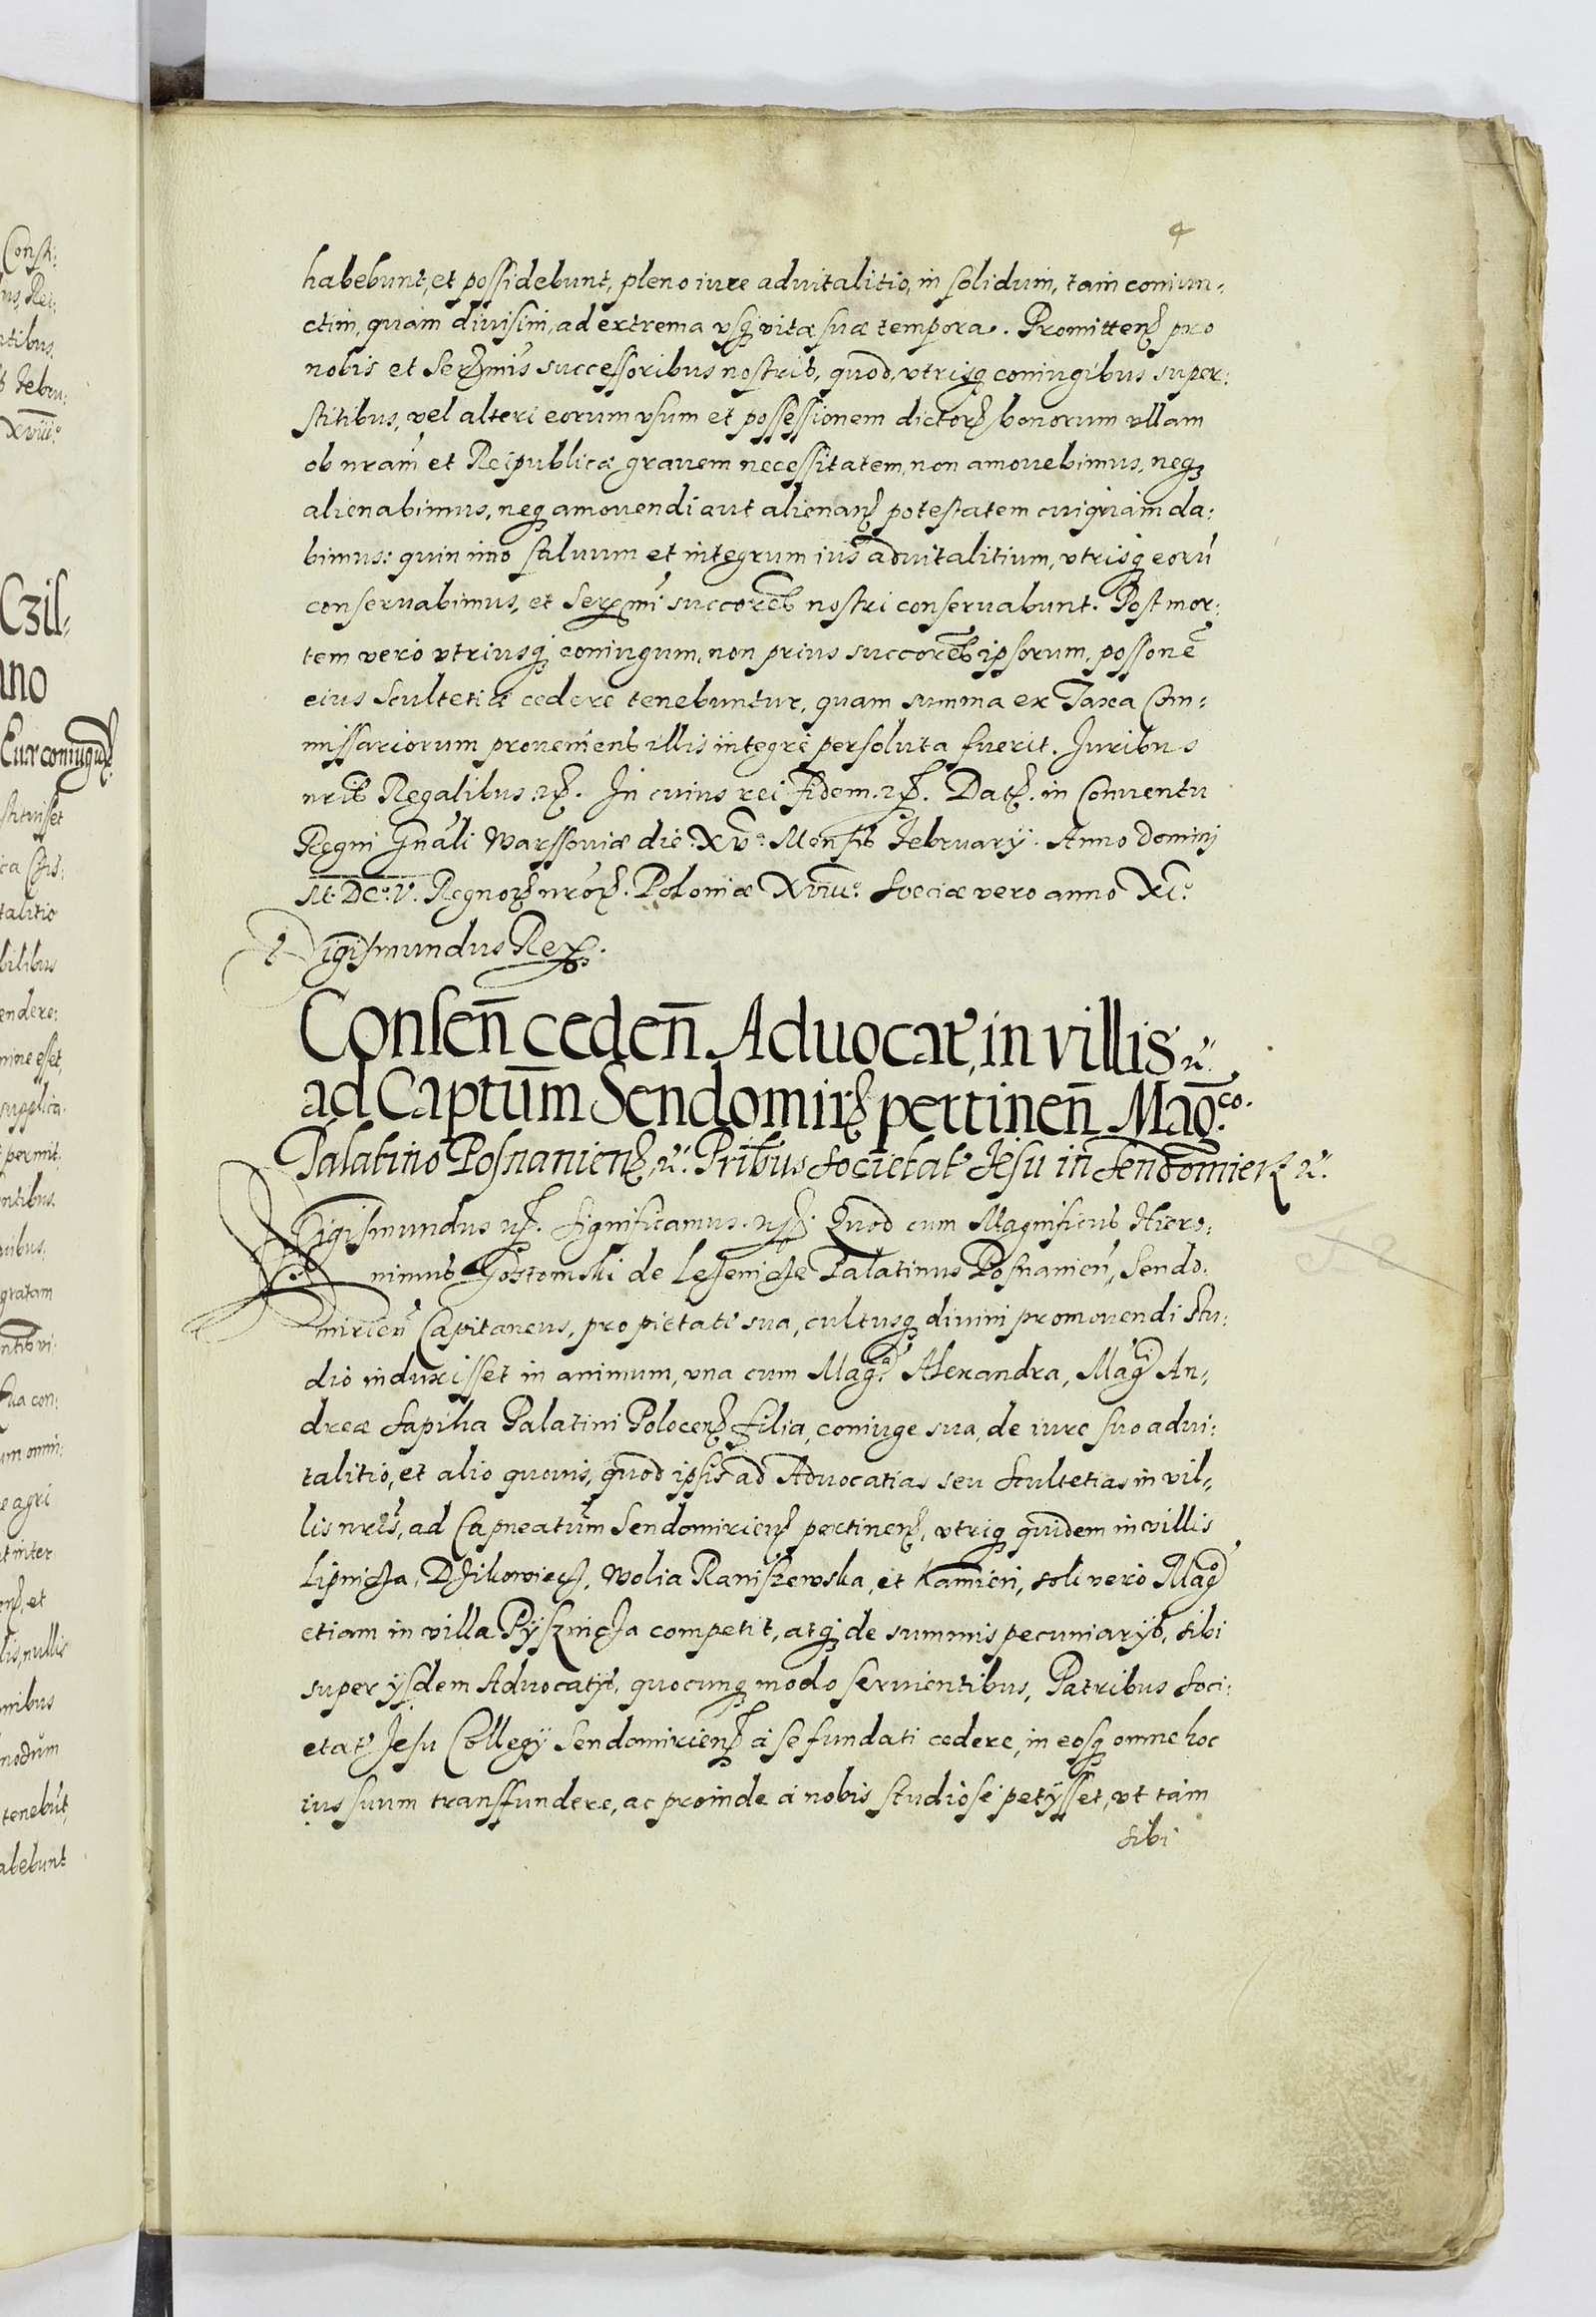 4
habebunt, et possidebunt, pleno iure aduitalitio, in solidum, tam coniun-
ctim, quam diuisim, ad extrema vsq vitæ suæ tempora. Promitten pro
nobis et Ser mis successoribus nostris, quod, vtrisq coniugibus super:
stitibus, vel alteri eorum vsum et possessionem dictor bonorum vllam
ob nram et Reipublicæ grauem necessitatem, non amouebimus, neq
alienabimus, neq amouendi aut alienan potestatem cuiq̃iam da:
bimus: quin imo saluum et integrum ius aduitalitium, vtrisq eorũ
conseruabimus, et Ser mi succores nostri conseruabunt. Post mor:
tem vero vtriusq coniugum, non prius succores ipsorum, possonẽ
eius Scultetiæ cedere tenebuntur, quam summa ex Taxa Com-
missariorum proueniens illis integre persoluta fuerit. Juribus
nris Regalibus. In cuius rei fidem. Dat. in Conuentu
Regni Gnãli Warssouiæ die. XVª. Mensis February. Anno Dominj
M. DCº. V. Regnor nror. Poloniæ XVIIIº. Sveciæ vero anno XIº.
Sigismundus Rex.
Consen̄ ceden̄ Aduocat, in villis
ad Captūm Sendomir pertinen̄ Mag̃co.
Palatino Posnanien Pribus Societat Jesu in Sendomier
Sigismundus Significamus. Quod cum Magnificus Hiero:
nimus Gostomski de Lezenicze Palatinus Posnanien, Sendo:
mirien Capitaneus, pro pietate sua, cultusq diuini promouendi stu:
dio induxisset in animum, vna cum Mag. Alexandra, Mag An-
dreæ Sapiha Palatini Polocen filia, coniuge sua, de iure suo adui:
talitio, et alio quouis, quod ipsis ad Aduocatias seu Scultetias in vil-
lis nris, ad Capneatũm Sendomirien pertinen, vtriq quidem in villis
Lipnicza, Dzikowiecz, Wolia Raniszewska, et Kamien, soli vero Mag
etiam in villa Pÿsznicza competit, atq de summis pecuniarÿs, sibi
super ÿsdem Aduocatÿs, quocunq modo seruientibus, Patribus Soci:
etat Jesu Collegÿ Sendomirien à se fundati cedere, in eosq omne hoc
ius suum transfundere, ac proinde à nobis studiose petÿsset, vt tam
sibi